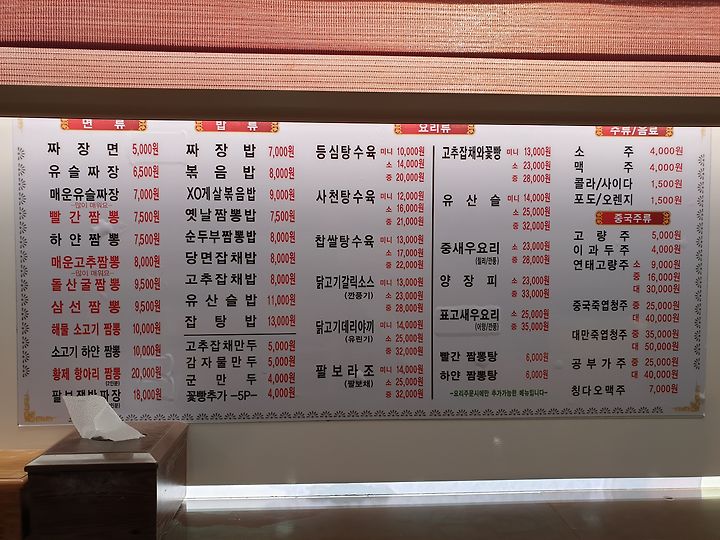 면 류
짜 장 면 5,000원
유 슬 짜 장 6,500원
매운유슬짜장 7,000원
-많이 매워요-
빨 간 짬 뽕 7,500원
하 얀 짬 뽕 7,500원
매운고추짬뽕 8,000원
-많이 매워요-
돌 산 굴 짬 뽕 9,500원
삼 선 짬 뽕 9,500원
해물 소고기 짬뽕 10,000원
소고기 하얀 짬뽕 10,000원
황제 항아리 짬뽕 20,000원
(2인분)
팔보쟁반짜장 18,000원
밥 류
짜 장 밥 7,000원
볶 음 밥 8,000원
XO게살볶음밥 9,000원
옛날짬뽕밥 7,500원
순두부짬뽕밥 8,000원
당면잡채밥 8,000원
고추잡채밥 8,000원
유 산 슬 밥 11,000원
잡 탕 밥 13,000원
고추잡채만두 5,000원
감자물만두 5,000원
군 만 두 4,000원
꽃빵추가 -5P- 4,000원
요리류
등심탕수육 미니 10,000원
소 14,000원
중 20,000원
사천탕수육 미니 12,000원
소 16,000원
중 21,000원
찹쌀탕수육 미니 13,000원
소 17,000원
중 22,000원
닭고기갈릭소스 미니 13,000원
(깐풍기) 소 23,000원
중 28,000원
닭고기데리야끼 미니 14,000원
(유린기) 소 25,000원
중 32,000원
팔 보 라 조 미니 14,000원
(팔보채) 소 25,000원
중 32,000원
고추잡채와꽃빵 미니 13,000원
소 23,000원
중 28,000원
유 산 슬 미니 14,000원
소 25,000원
중 32,000원
중새우요리 소 23,000원
(칠리/깐풍) 중 28,000원
양 장 피 소 23,000원
중 33,000원
표고새우요리 소 25,000원
(어향/깐풍) 중 35,000원
빨간 짬뽕탕 6,000원
하얀 짬뽕탕 6,000원
-요리주문시에만 추가가능한 메뉴입니다-
주류/음료
소 주 4,000원
맥 주 4,000원
콜라/사이다 1,500원
포도/오렌지 1,500원
중국주류
고 량 주 5,000원
이 과 두 주 4,000원
연태고량주 소 9,000원
중 16,000원
대 30,000원
중국죽엽청주 중 25,000원
대 40,000원
대만죽엽청주 중 35,000원
대 50,000원
공 부 가 주 중 25,000원
대 40,000원
칭다오맥주 7,000원